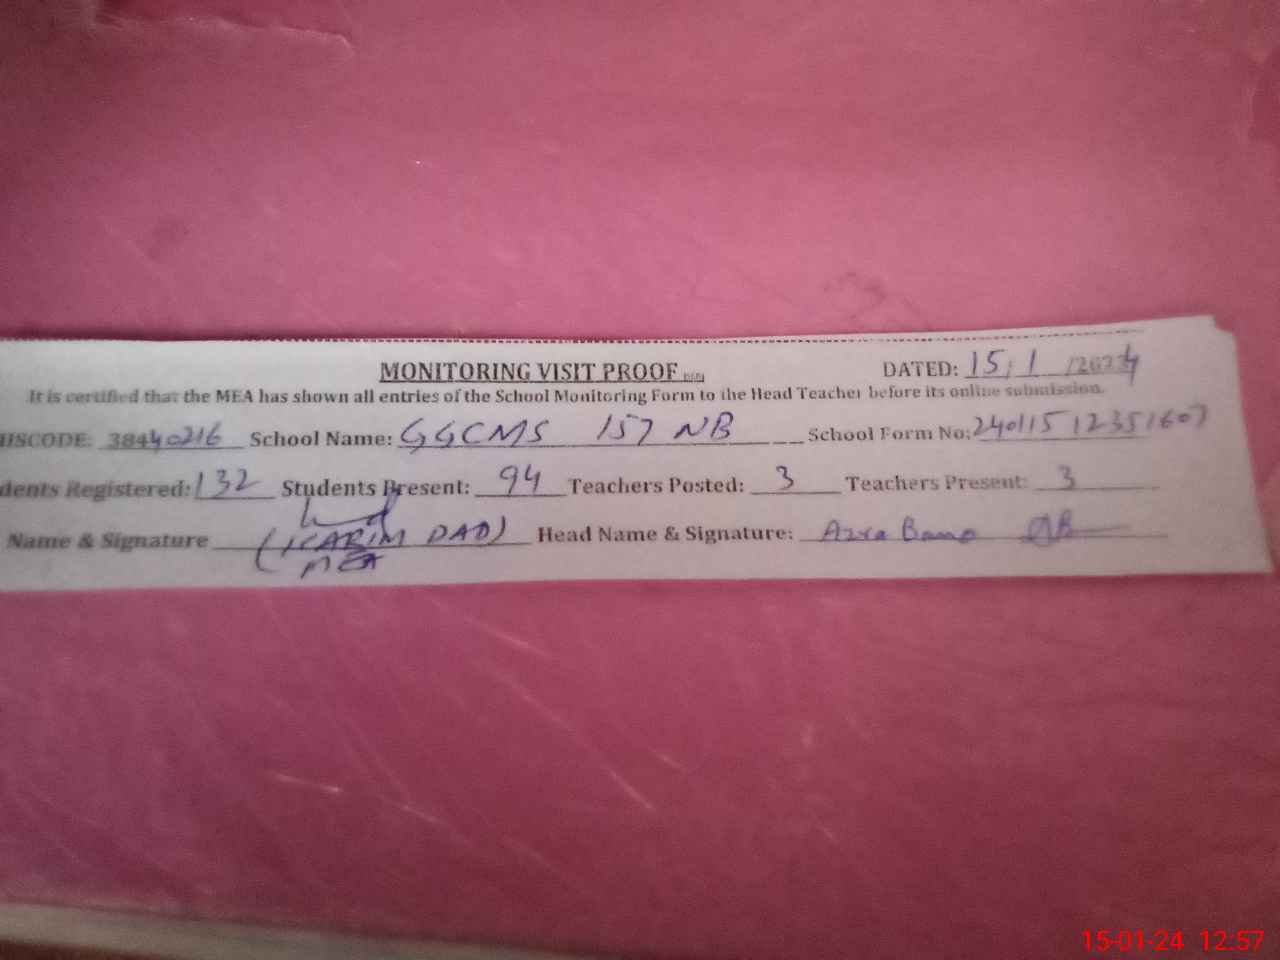 MONITORING VISIT PROOF
DATED: 15/1/2024
It is certified that the MEA has shown all entries of the School Monitoring Form to the Head Teacher before its online submission.
USCODE: 38440216 School Name: GGCMS 157 NB School Form No: 24011512351607
dents Registered: 132 Students Present: 94 Teachers Posted: 3 Teachers Present: 3
Name & Signature (KARIM DAD) Head Name & Signature: Azra Bano
MEA
15-01-24 12:57